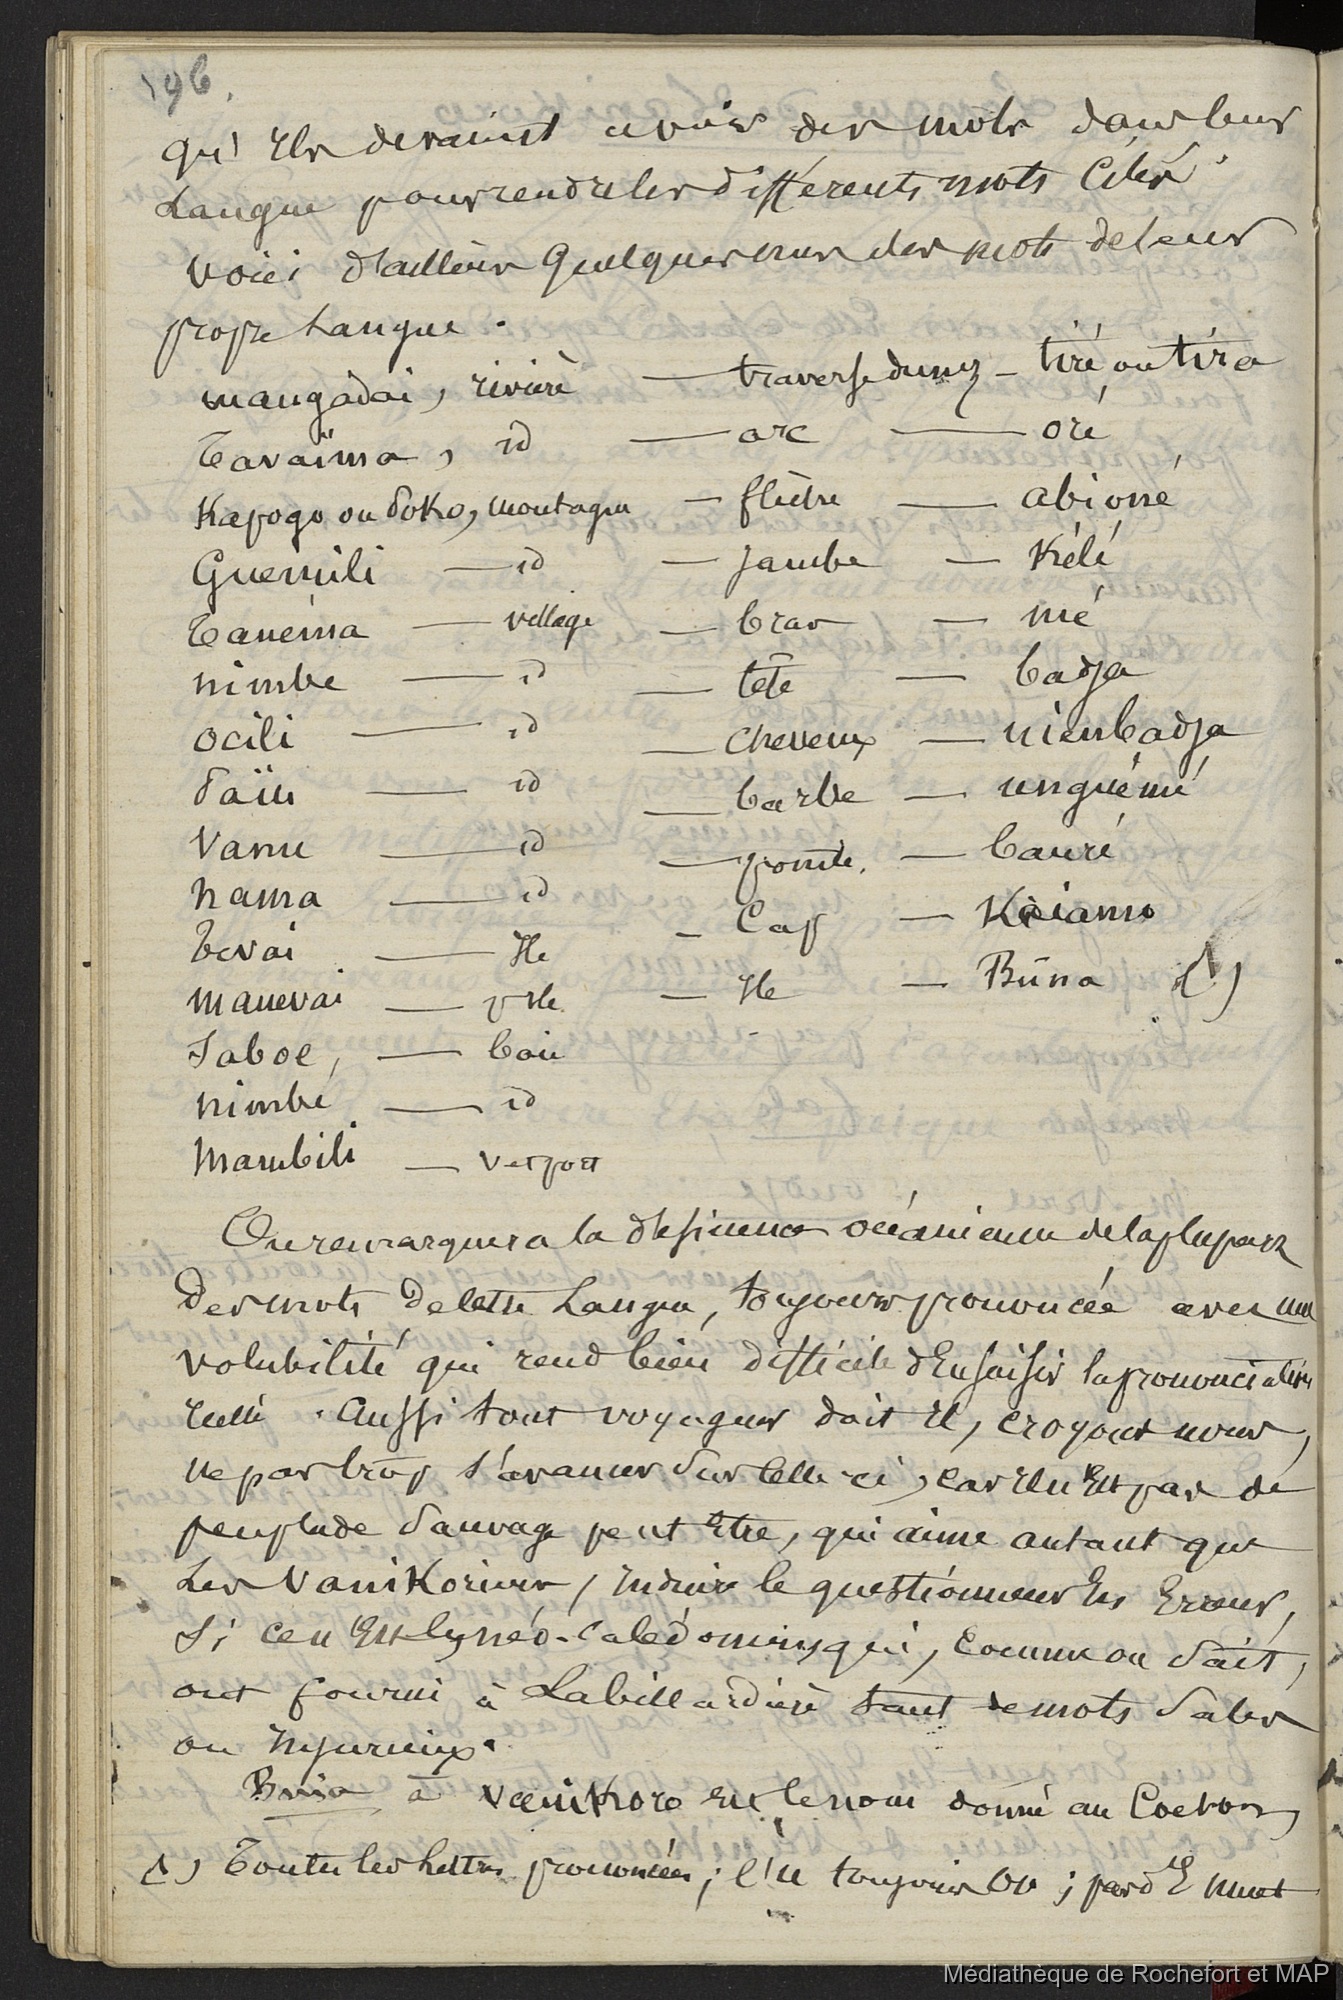 196.
qu'ils devaient avoir des mots dans leur
Langue pour rendre les différents mots Cités.
voici d'ailleurs quelques uns des mots de leur
propre Langue.
mangadai, rivière — traverse du nez — tiré ou tira
Tavaïma, id — arc — oré
Kapogo ou Soko, montagne — flèche — abioné
Guemili — id — jambe — Kélé
Tanéma — village — bras — mé
nimbe — id — tête — badja
ocili — id — cheveux — nienbadja
Païu — id — barbe — unguémé
Vanu — id — pointe. — bauré
nama — id — Cap — Kaiamo
Tevai — Ile — Ile — Buna (1)
manevai — pte Ile
Saboe, — baie
nimbé — id
Mambili — vet port
On remarquera la désinence océanienne de la plupart
des mots de cette Langue, toujours prononcée avec une
volubilité qui rend bien difficile d'en saisir la prononciation
réelle. Aussi tout voyageur doit il, croyons nous,
ne pas trop s'avancer sur celle ci, car il n'est pas de
peuplade sauvage peut être, qui aime autant que
Les Vanikoriens, induire le questionneur en erreur,
Si ce n'est les néo-Calédoniens qui, comme on sait,
ont fourni à Labillardière tant de mots sales
ou injurieux.
Buna à Vanikoro est le nom donné au
(1) Toutes les Lettres prononcées; l'u toujours ou; pas d'E muet
Médiathèque de Rochefort et MAP